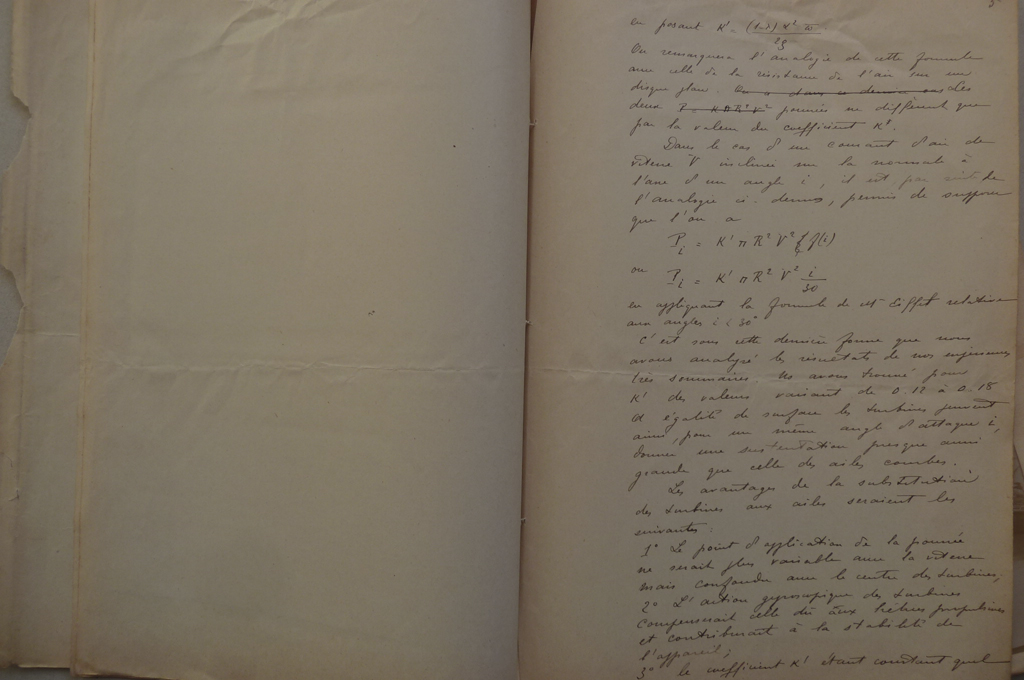 5
en posant K' = (1-λ) K² π / 2g
On remarquera l'analogie de cette formule
avec celle de la résistance de l'air sur un
disque plan. On a dans ce dernier cas Les
deux P = K π R² V² poussées ne diffèrent que
par la valeur du coefficient K'.
Dans le cas d'un courant d'air de
vitesse V inclinée sur la normale à
l'axe d'un angle i, il est, par suite de
l'analogie ci-dessus, permis de supposer
que l'on a
P i = K' π R² V² f(i)
ou P i = K' π R² V² i/30
en appliquant la formule de Mr Eiffel relative
aux angles i < 30°
C'est sous cette dernière forme que nous
avons analysé les résultats de nos expériences
très sommaires. Ns avons trouvé pour
K' des valeurs variant de 0.12 à 0.18
A égalité de surface les turbines peuvent
ainsi, pour un même angle d'attaque i,
donner une sustentation presque aussi
grande que celle des ailes courbes.
Les avantages de la substitution
des turbines aux ailes seraient les
suivantes :
1° Le point d'application de la poussée
ne serait plus variable avec la vitesse
mais confondu avec le centre des turbines,
2° L'action gyroscopique des turbines
compenserait celle dû aux hélices propulsives
et contribuerait à la stabilité de
l'appareil ;
3° le coefficient K' étant constant quel